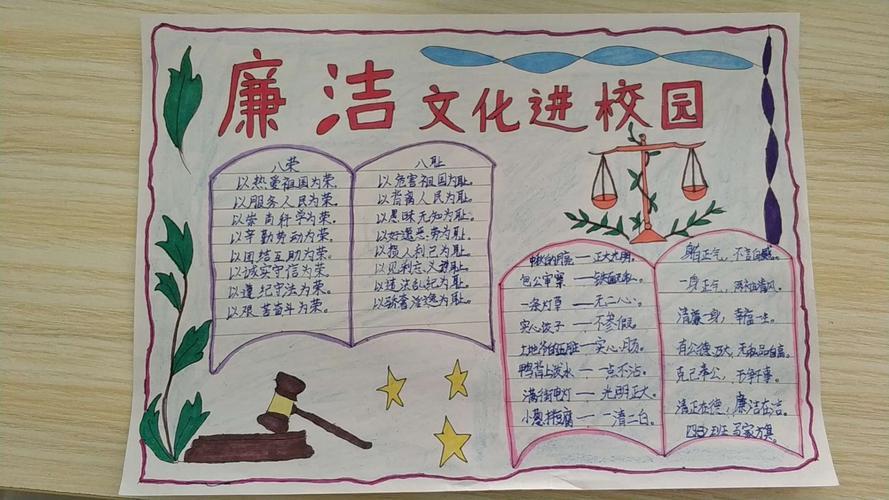 廉洁文化进校园
八荣
以热爱祖国为荣。
以服务人民为荣。
以崇尚科学为荣。
以辛勤劳动为荣。
以团结互助为荣。
以诚实守信为荣。
以遵纪守法为荣。
以艰苦奋斗为荣。
八耻
以危害祖国为耻。
以背离人民为耻。
以愚昧无知为耻。
以好逸恶劳为耻。
以损人利己为耻。
以见利忘义为耻。
以违法乱纪为耻。
以骄奢淫逸为耻。
中秋的月亮——正大光明。
包公审案——铁面无私。
一条灯草——无二心。
实心饺子——不参假。
土地爷的五脏——实心
鸭背上泼水——一点不沾。
满街电灯——光明正大。
小葱拌豆腐——一清二白。
身有正气，不言自威。
一身正气，两袖清风。
清廉一身，幸福一生。
有公德乃大，无私品自高。
克己奉公，
清正在德，廉洁在志。
班 马家旗